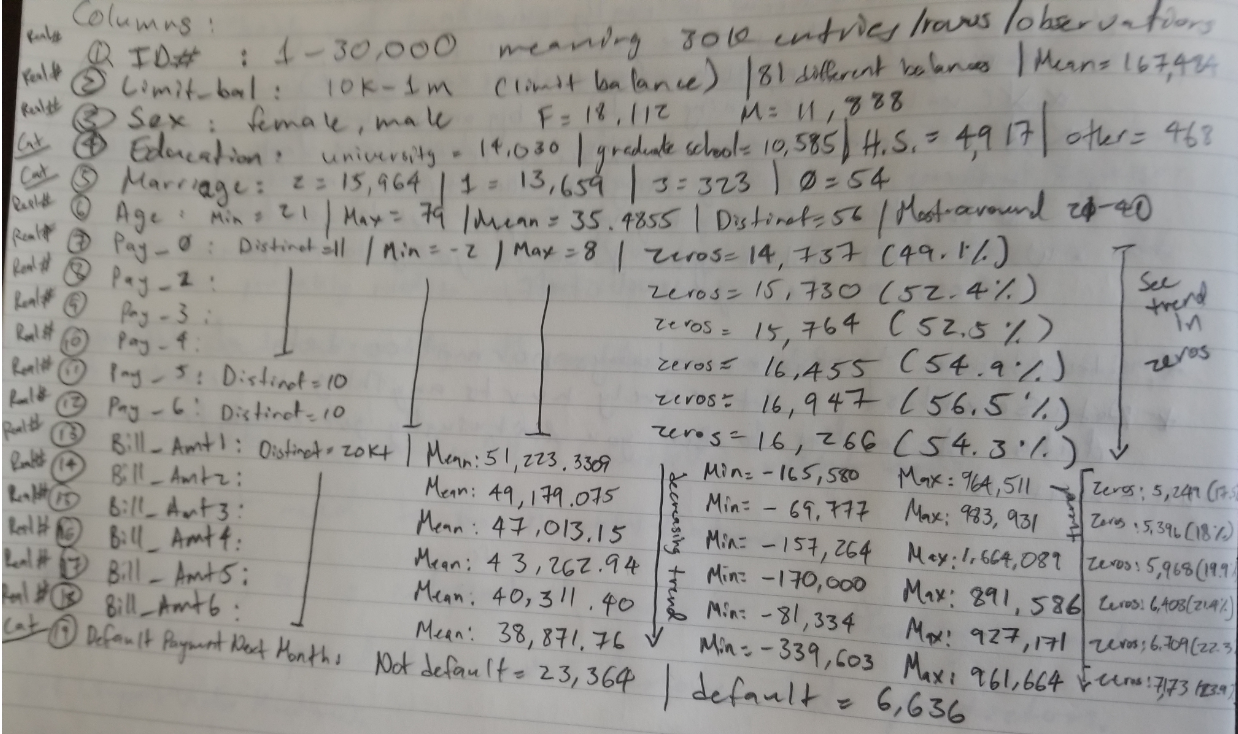 Columns:
Real# ① ID# : 1-30,000 meaning 30K entries/rows/observations
Real# ② Limit_bal : 10K-1m (limit balance) | 81 different balances | Mean = 167,484
Real# ③ Sex : female, male F = 18,112 M = 11,888
Cat ④ Education : university = 14,030 | graduate school = 10,585 | H.S. = 4,917 | other = 468
Cat ⑤ Marriage : 2 = 15,964 | 1 = 13,659 | 3 = 323 | Ø = 54
Real# ⑥ Age : Min = 21 | Max = 79 | Mean = 35.4855 | Distinct = 56 | Most around 21-40
Real# ⑦ Pay_0 : Distinct = 11 | Min = -2 | Max = 8 | zeros = 14,737 (49.1%)
Real# ⑧ Pay_2 : zeros = 15,730 (52.4%) See
Real# ⑨ Pay_3 : zeros = 15,764 (52.5%) trend
Real# ⑩ Pay_4 : zeros = 16,455 (54.9%) in
Real# ⑪ Pay_5 : Distinct = 10 zeros = 16,947 (56.5%) zeros
Real# ⑫ Pay_6 : Distinct = 10 zeros = 16,266 (54.3%)
Real# ⑬ Bill_Amt1 : Distinct = 20K+ | Mean: 51,223.3309 Min = -165,580 Max: 964,511 zeros: 5,249 (17.5
Real# ⑭ Bill_Amt2 : Mean: 49,179.075 Min = -69,777 Max: 983,931 zeros: 5,396 (18%)
Real# ⑮ Bill_Amt3 : Mean: 47,013.15 Min = -157,264 Max: 1,664,089 zeros: 5,968 (19.9
Real# ⑯ Bill_Amt4 : Mean: 43,262.94 Min = -170,000 Max: 891,586 zeros: 6,408 (21.4%)
Real# ⑰ Bill_Amt5 : Mean: 40,311.40 Min = -81,334 Max: 927,171 zeros: 6,709 (22.3
Real# ⑱ Bill_Amt6 : Mean: 38,871.76 Min = -339,603 Max: 961,664 zeros: 7,173 (23.9
decreasing trend
Cat ⑲ Default Payment Next Month: Not default = 23,364 | default = 6,636